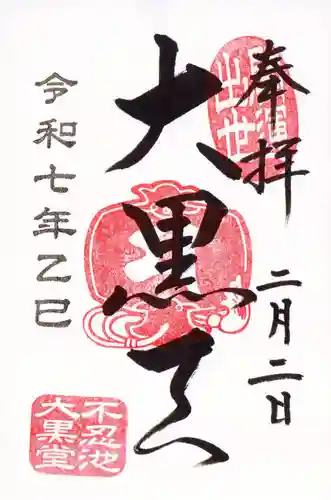 奉拝
二月二日
大黒天
令和七年乙巳
不忍池
大黒堂